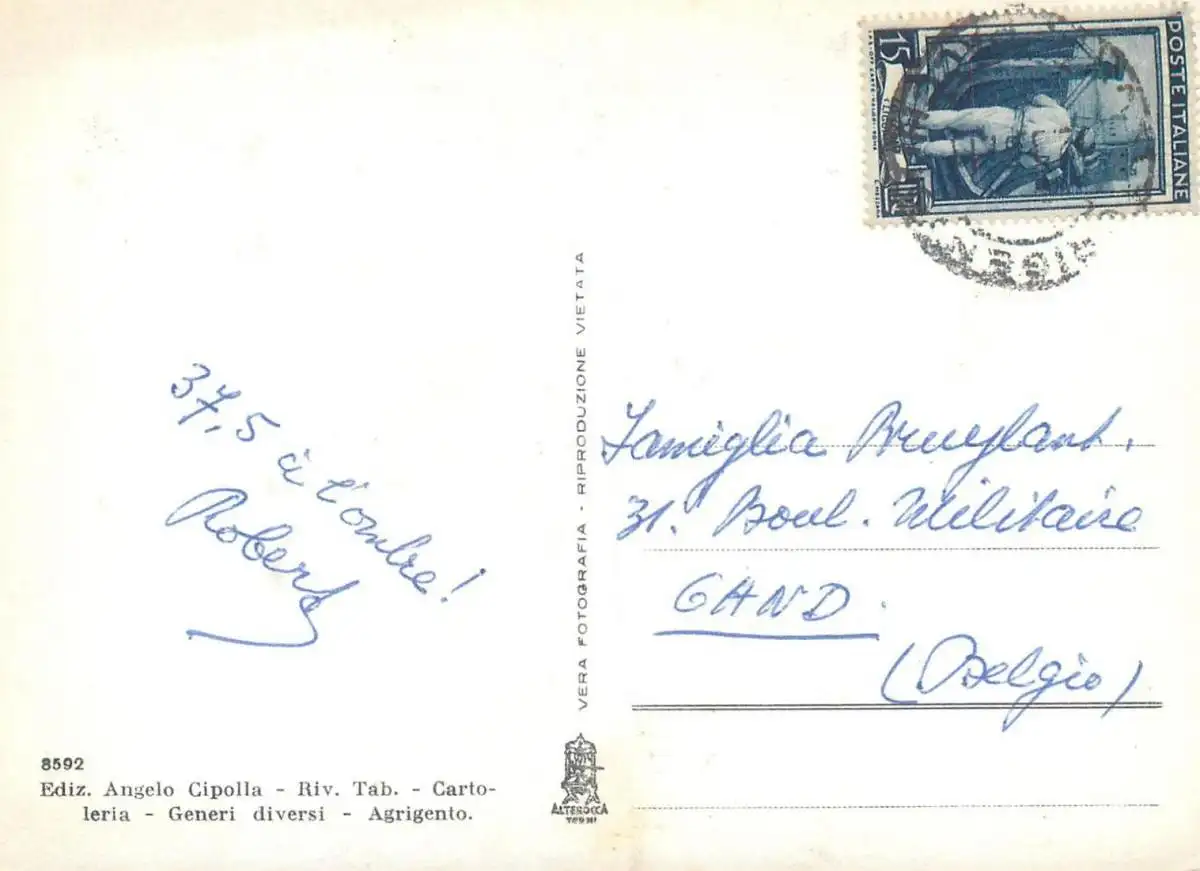 37,5 à l'ombre!
Robert
8592
Ediz. Angelo Cipolla - Riv. Tab. - Carto-
leria - Generi diversi - Agrigento.
VERA FOTOGRAFIA - RIPRODUZIONE VIETATA
ALTEROCCA
TERNI
POSTE ITALIANE
15
LIRE
Famiglia Bruylant.
31. Boul. Militaire
GAND.
(Belgio)